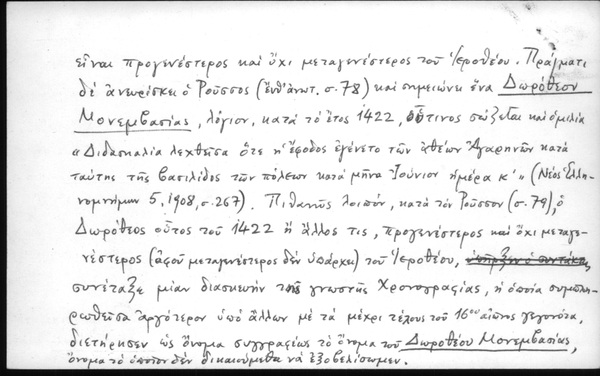 εἶναι προγενέστερος καὶ ὄχι μεταγενέστερος τοῦ Ἱεροθέου. Πράγματι
δὲ ἀνευρίσκει ὁ Ροῦσσος (ἔνθ' ἀνωτ. σ. 78) καὶ σημειώνει ἕνα Δωρόθεον
Μονεμβασίας, λόγιον, κατὰ τὸ ἔτος 1422, οὗτινος σώζεται καὶ ὁμιλία
«Διδασκαλία λεχθεῖσα ὅτε ἡ ἔφοδος ἐγένετο τῶν ἀθέων Ἀγαρηνῶν κατὰ
ταύτης τῆς βασιλίδος τῶν πόλεων κατὰ μῆνα Ἰούνιον ἡμέρᾳ κ΄» (Νέος Ἑλλη-
νομνήμων 5, 1908, σ. 267). Πιθανῶς λοιπόν, κατὰ τὸν Ροῦσσον (σ. 79), ὁ
Δωρόθεος οὗτος τοῦ 1422 ἢ ἄλλος τις, προγενέστερος καὶ ὄχι μεταγε-
νέστερος (ἀφοῦ μεταγενέστερος δὲν ὑπάρχει) τοῦ Ἱεροθέου, ὑπῆρξεν ὁ συντάκτης
συνέταξε μίαν διασκευὴν τῆς γνωστῆς Χρονογραφίας, ἡ ὁποία συμπλη-
ρωθεῖσα ἀργότερον ὑπὸ ἄλλων μὲ τὰ μέχρι τέλους τοῦ 16ου αἰῶνος γεγονότα,
διετήρησεν ὡς ὄνομα συγγραφέως τὸ ὄνομα τοῦ Δωροθέου Μονεμβασίας,
ὄνομα τὸ ὁποῖον δὲν δικαιούμεθα νὰ ἐξοβελίσωμεν.